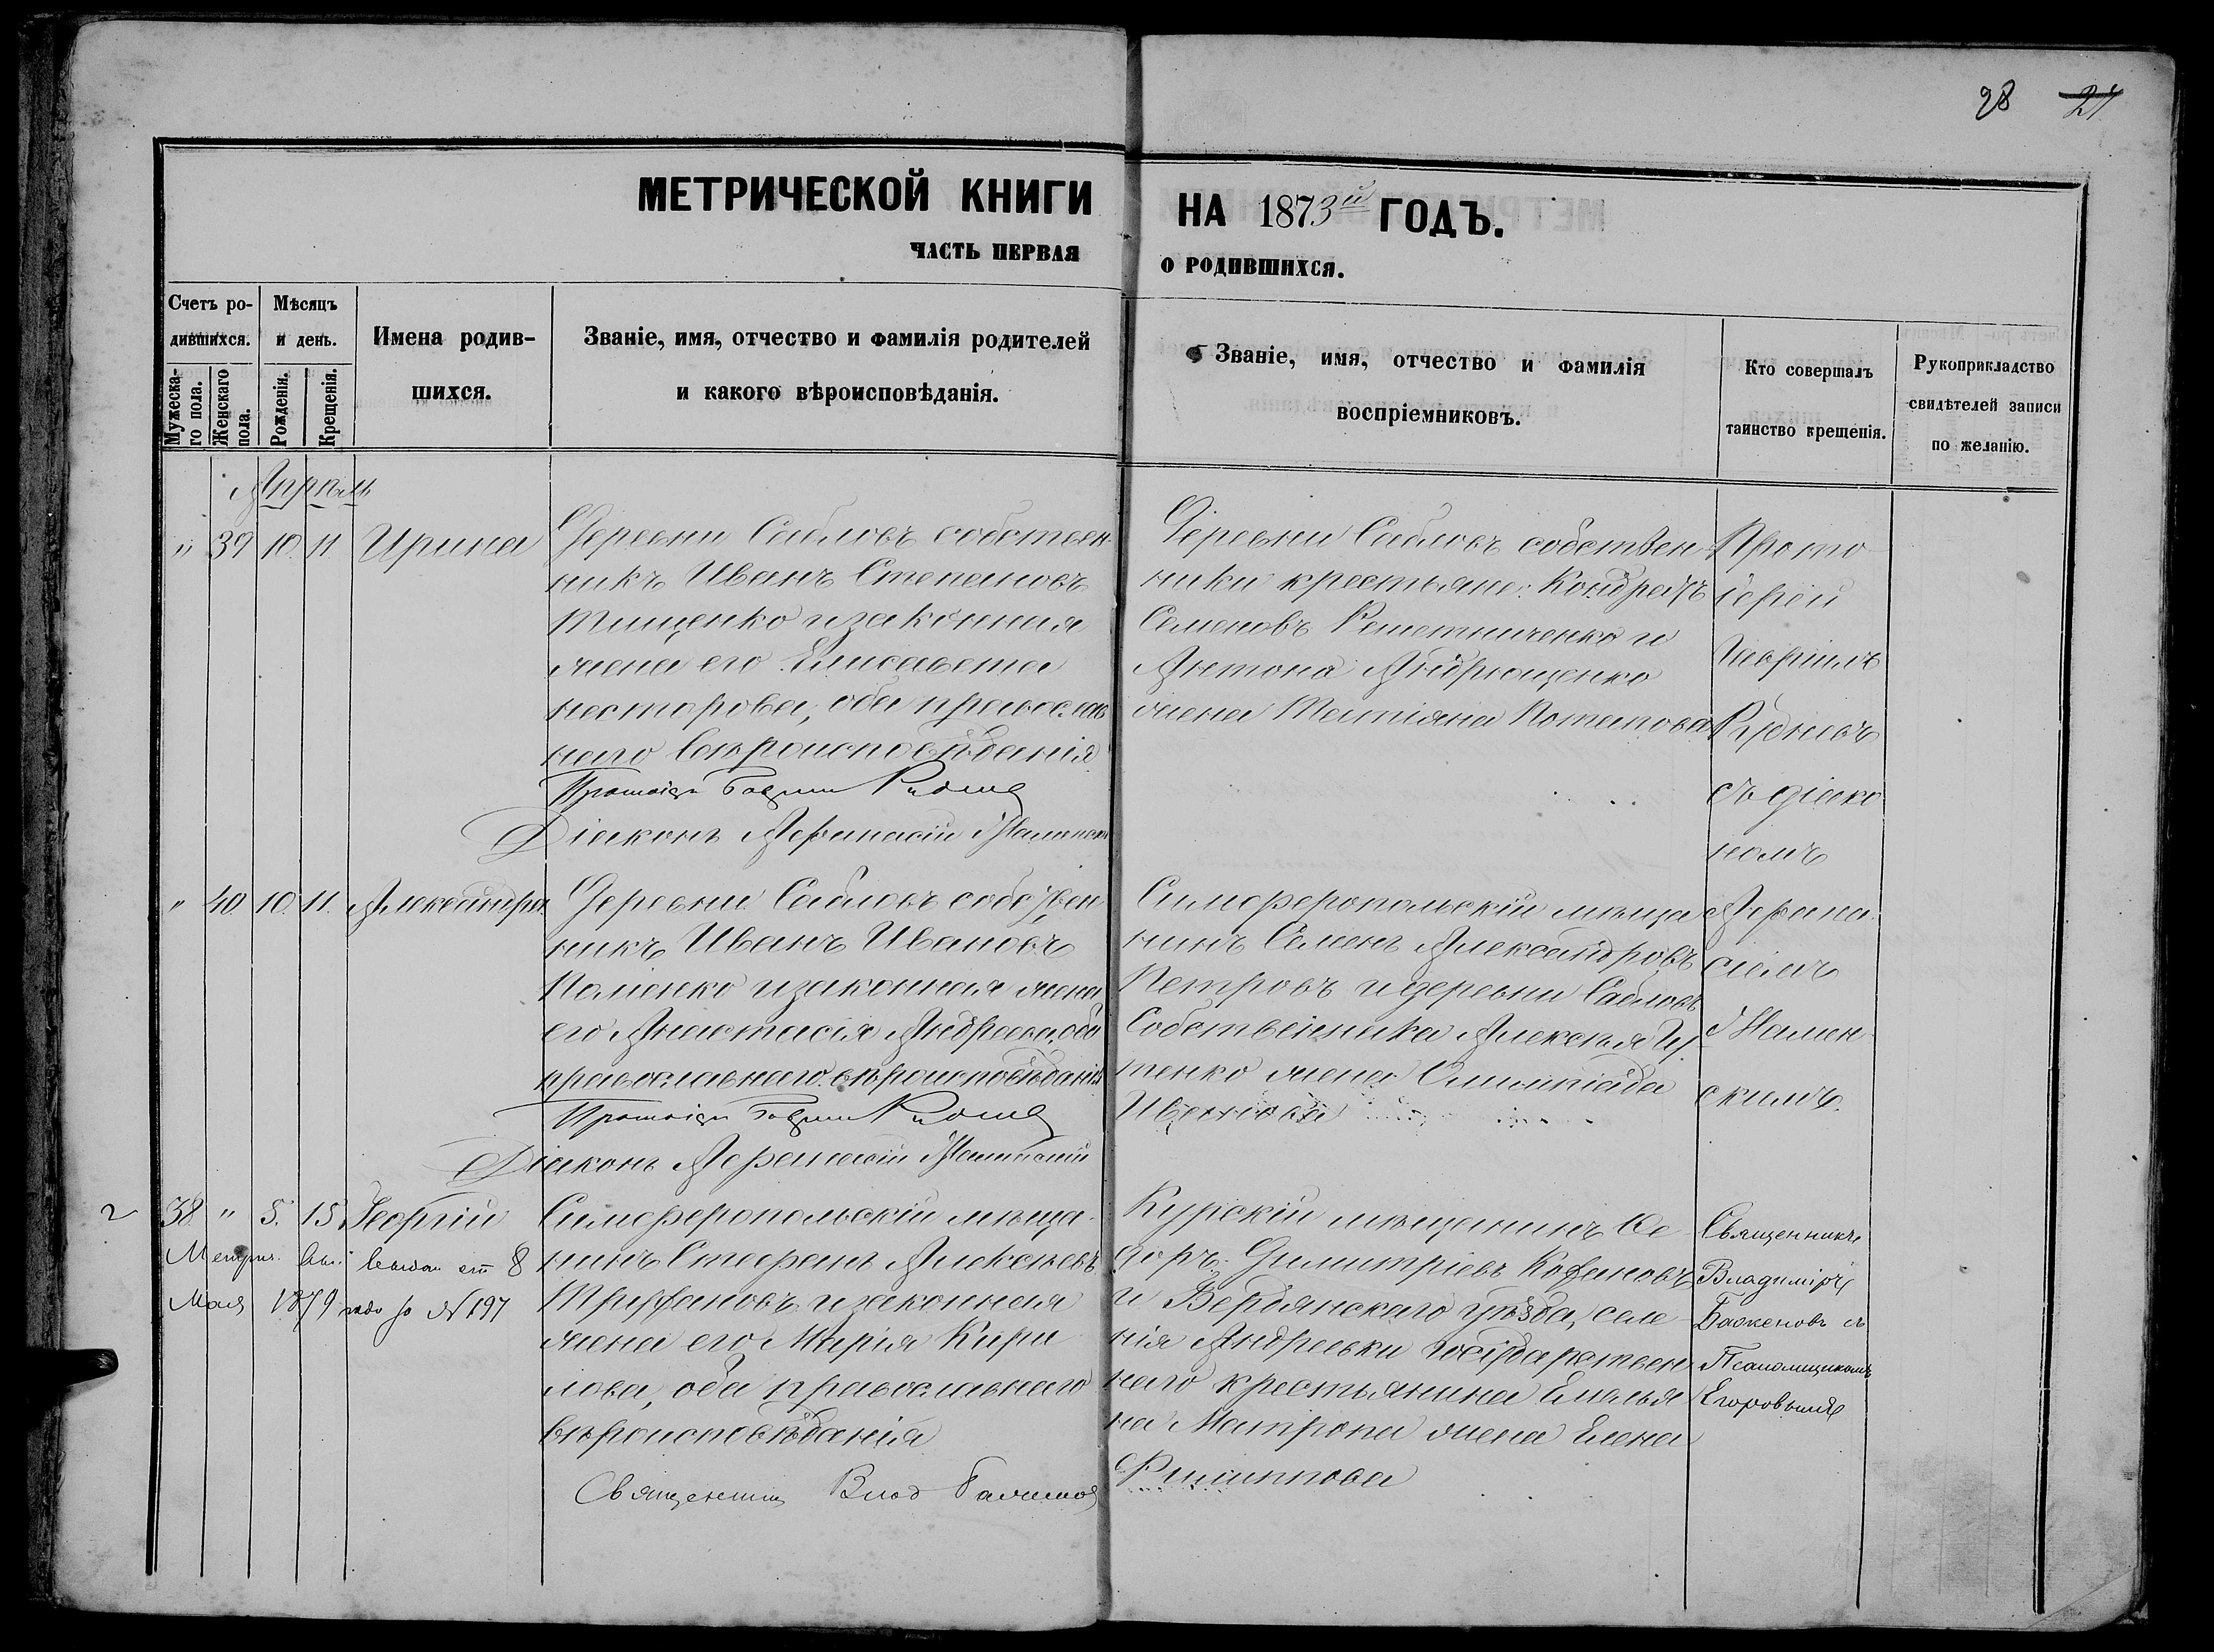 28 27
МЕТРИЧЕСКОЙ КНИГИ НА 1873й ГОДЪ.
ЧАСТЬ ПЕРВАЯ О РОДИВШИХСЯ.
Счетъ ро-
дившихся.
Мужеска-
го пола.
Женскаго
пола.
Мѣсяцъ
и день.
Рожденія.
Крещенія.
Имена родив-
шихся.
Званіе, имя, отчество и фамилія родителей
и какого вѣроисповѣданія.
Званіе, имя, отчество и фамилія
воспріемниковъ.
Кто совершалъ
таинство крещенія.
Рукоприкладство
свидѣтелей записи
по желанію.
Апрѣль
" 39 10. 11. Ирина
Деревни Сабловъ собствен-
никъ Иванъ Степановъ
Тищенко и законная
жена его Елисавета
Несторова, оба православ
наго вѣроисповѣданія
Діаконъ Афанасій
Деревни Сабловъ собствен-
ники крестьяне: Кондратъ
Семеновъ Решетниченко и
Антона Андрющенко
жена Татіяна Потапова
Прото
іерей
Гавріилъ
Рудневъ
съ діако
номъ
" 40. 10. 11. Александра
Деревни Сабловъ собствен
никъ Иванъ Ивановъ
и законная жена
его Анастасія Андреева, оба
православнаго вѣроисповѣданія
Діаконъ Афанасій
Симферопольскій мѣща
нинъ Семенъ Александровъ
Петровъ и деревни Сабловъ
Собственника Алексѣя
тенко жена Олимпіада
Иванова
Афана
сіемъ
скимъ.
2 38 " 5. 15. Георгій
Метрич. выдан 8
Мая 1879 года № 197
Симферопольскій мѣща-
нинъ Стефанъ Алексѣевъ
Трифановъ и законная
жена его Марія Кири
лова, оба православнаго
вѣроисповѣданія
Священникъ Влад
Курскій мѣщанинъ Ѳе
доръ Димитріевъ Кофановъ
и Бердянскаго уѣзда, селе
нія Андреевки государствен
наго крестьянина Емелья
на Матрона жена Елена
Филиппова
Священникъ
Владиміръ
Баженовъ съ
Псаломщикомъ
Егоровымъ